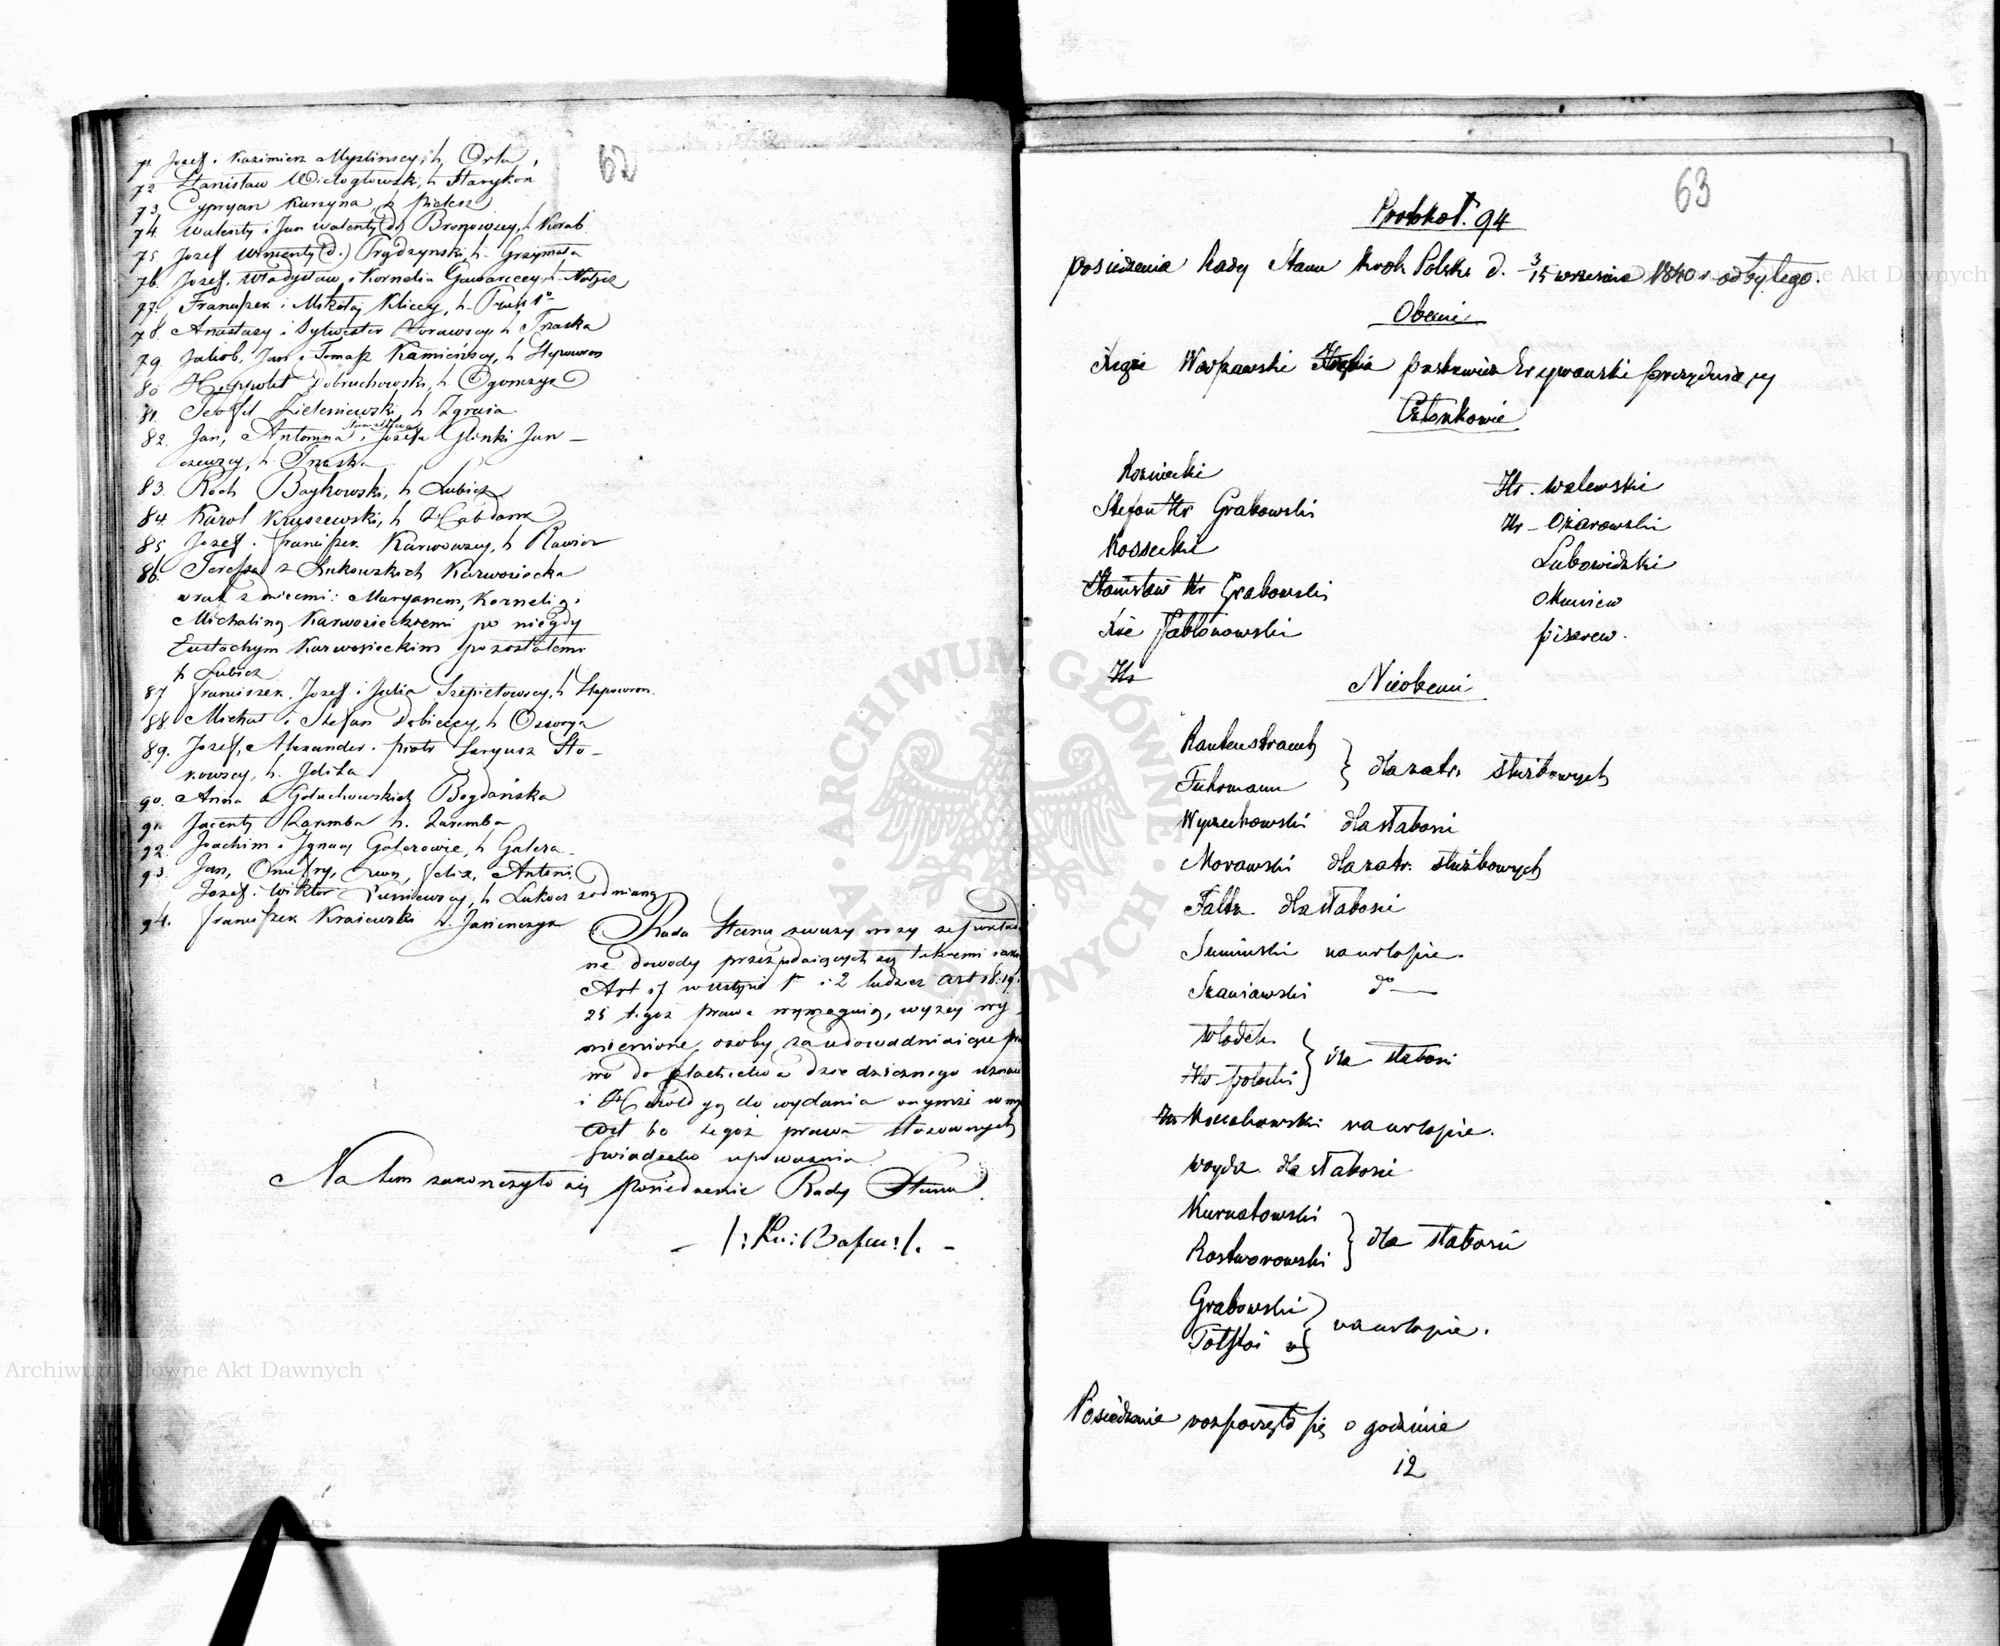 62
71. Józef i Kazimierz Myślińscy, h. Orla,
72 Stanisław Wielogłowski, h. Starykoń
73. Cypryan Kurzyna, h. Pielesz
74. Walenty i Jan Walenty (d) Broniowscy, h. Korab
75. Józef Wincenty (d.) Prądzyński, h. Grzymała
76. Józef, Władysław i Kornelia Gawareccy, h. Nałęcz
77. Franciszek i Mikołaj Kliccy, h. Prus 1o
78. Anastazy i Sylwester Żórawscy, h. Trzaska
79. Jakób, Jan i Tomasz Kamieńscy, h. Slepowron
80 Hippolit Dobruchowski, h. Ogończyk
81. Teofil Zieleniewski, h. Zgraia
82. Jan, Antonina i Józefa Glinki Jan-
czewscy, h. Trzaska
83. Roch Baykowski, h. Lubicz
84. Karol Kruszewski, h. Habdank
85 Józef i Franciszek Karwowscy, h. Rawicz
86. Teressa z Łukowskich Karwosiecka
wraz z dziećmi: Maryanem, Kornelią i
Michaliną Karwosieckiemi po niegdy
Eustachym Karwosieckim pozostałemi
h. Lubicz
87 Franciszek, Józef i Julia Szepietowscy, h. Slepowron.
88. Michał i Stefan Dobieccy, h. Ossorya
89. Józef, Alexander i Piotr Saryusz Sto-
kowscy, h. Jelita
90. Anna z Gołuchowskich Bogdańska
91. Jacenty Zaremba h. Zaremba
92. Joachim i Ignacy Gołczowie, h. Gołcza
93. Jan, Onufry, Iwon, Felix, Antoni
Józef i Wiktor Łuniewscy, h. Lubicz z odmianą
94. Franciszek Kraiewski h. Jasieńczyk
Rada Stanu zważywszy że
ne dowody przezpodaiących są takiemi iakie
Art 17 w ustępie 1 i 2 tudzież Art 18. 19.
25 tegoż prawa wymagaią, wyżey wy-
mienione osoby za udowadniaiące
wo do szlachectwa dziedzicznego
i Heroldyą do wydania onymże w myśl
Art 60 tegoż prawa stosownych
świadectw upoważnia.
Na tem zakończyło się posiedzenie Rady Stanu.
63
Protokoł. 94
posiedzenia Rady Stanu Król. Polskie d. 3/15 września 1840 r. odbytego.
Obecni
Xiąże Warszawski Hrabia Paskiewicz Erywański prezydujący
Członkowie
Rożniecki
Hr. Walewski
Stefan Hr Grabowski
Hr. Ożarowski
Kossecki
Lubowidzki
Stanisław Hr Grabowski
Okuniew
Xże Jabłonowski
Pisarew.
Hr
Nieobecni
Rautenstrauch
Fuhrmann
dla zatr. służbowych
Wyczechowski dla słabości
Morawski dla zatr. służbowych
Faltz dla słabości
Sumiński na urlopie.
Szaniawski do
Włodek
Hr. Potocki
dla słabości
Hr Kochanowski na urlopie.
Woyda dla słabości
Kurnatowski
Rostworowski
dla słabości
Grabowski
Tołstoi
na urlopie.
Posiedzenie rozpoczęło się o godzinie
12
ARCHIWUM GŁÓWNE AKT DAWNYCH
Archiwum Główne Akt Dawnych